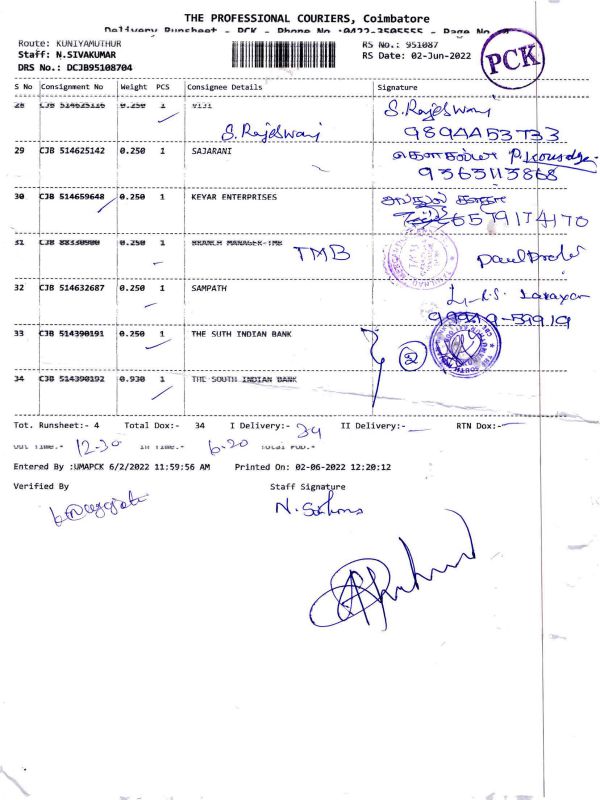 THE PROFESSIONAL COURIERS, Coimbatore
Delivery Runsheet - PCK - Phone No :0422-3505555 - Page No
Route: KUNIYAMUTHUR
RS No.: 951087
Staff: N.SIVAKUMAR
RS Date: 02-Jun-2022
DRS No.: DCJB95108704
PCK
S No Consignment No Weight PCS Consignee Details Signature
28 CJB 514625116 0.250 1 VIJI S. Rajeswari
S. Rajeswari 9894453733
29 CJB 514625142 0.250 1 SAJARANI
9363113868
30 CJB 514659648 0.250 1 KEYAR ENTERPRISES
6579174170
31 CJB 88330900 0.250 1 BRANCH MANAGER-TMB TMB
32 CJB 514632687 0.250 1 SAMPATH
99949-59919
33 CJB 514390191 0.250 1 THE SUTH INDIAN BANK
2
34 CJB 514390192 0.930 1 THE SOUTH INDIAN BANK
Tot. Runsheet:- 4 Total Dox:- 34 I Delivery:- 34 II Delivery:- RTN Dox:-
Out Time.- 12-30 In Time.- 6-20 Total POD.-
Entered By :UMAPCK 6/2/2022 11:59:56 AM Printed On: 02-06-2022 12:20:12
Verified By Staff Signature